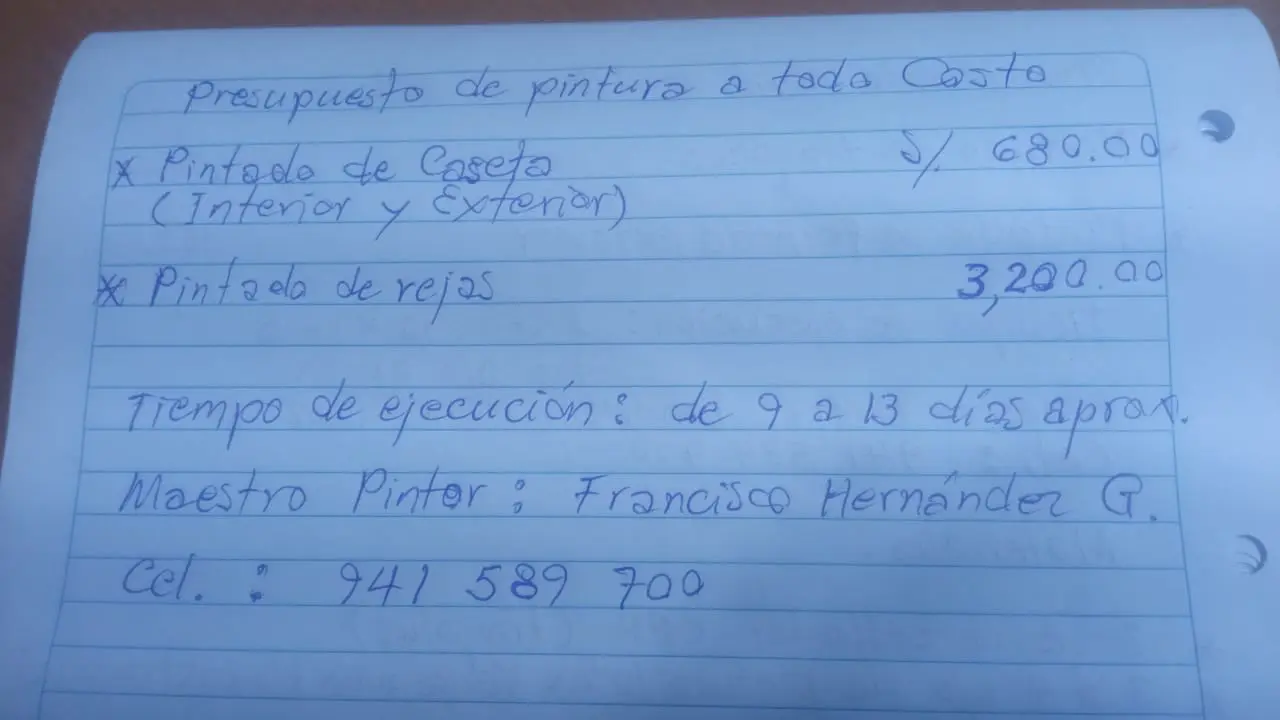 Presupuesto de pintura a todo Costo
* Pintado de Caseta S/. 680.00
(Interior y Exterior)
* Pintado de rejas 3,200.00
Tiempo de ejecución: de 9 a 13 días aprox.
Maestro Pintor: Francisco Hernández G.
Cel. : 941 589 700